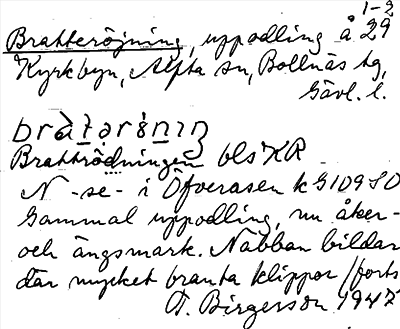 1-2
Bratteröjning, uppodling å 29
Kyrkbyn, Alfta sn, Bollnäs tg,
Gävl. l.
Brattrödningen bls KR
N -se- i Öfverasen k G109 SO
Gammal uppodling, nu åker-
och ängsmark. Nabban bildar
där mycket branta klippor /forts
T. Birgerson 1947